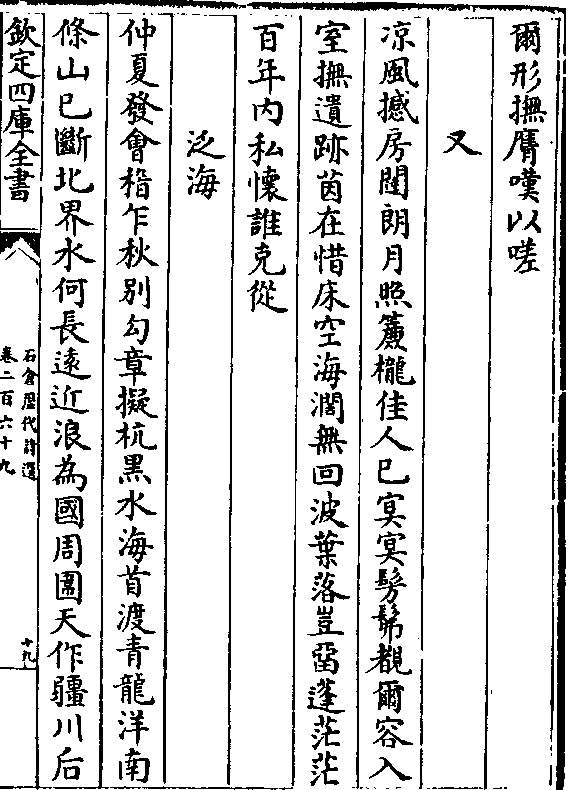 爾形撫膺嘆以嗟
又
凉風撼房闥朗月照簾櫳佳人已㝠㝠髣髴覩爾容入
室撫遺跡茵在惜床空海濶無回波葉落豈留蓬茫茫
百年内私懷誰克從
泛海
仲夏發會稽乍秋别勾章擬杭黒水海首渡青龍洋南
條山已斷北界水何長遠近浪為國周圍天作疆川后
欽定四庫全書
石倉歴代詩選
卷二百六十九
十九